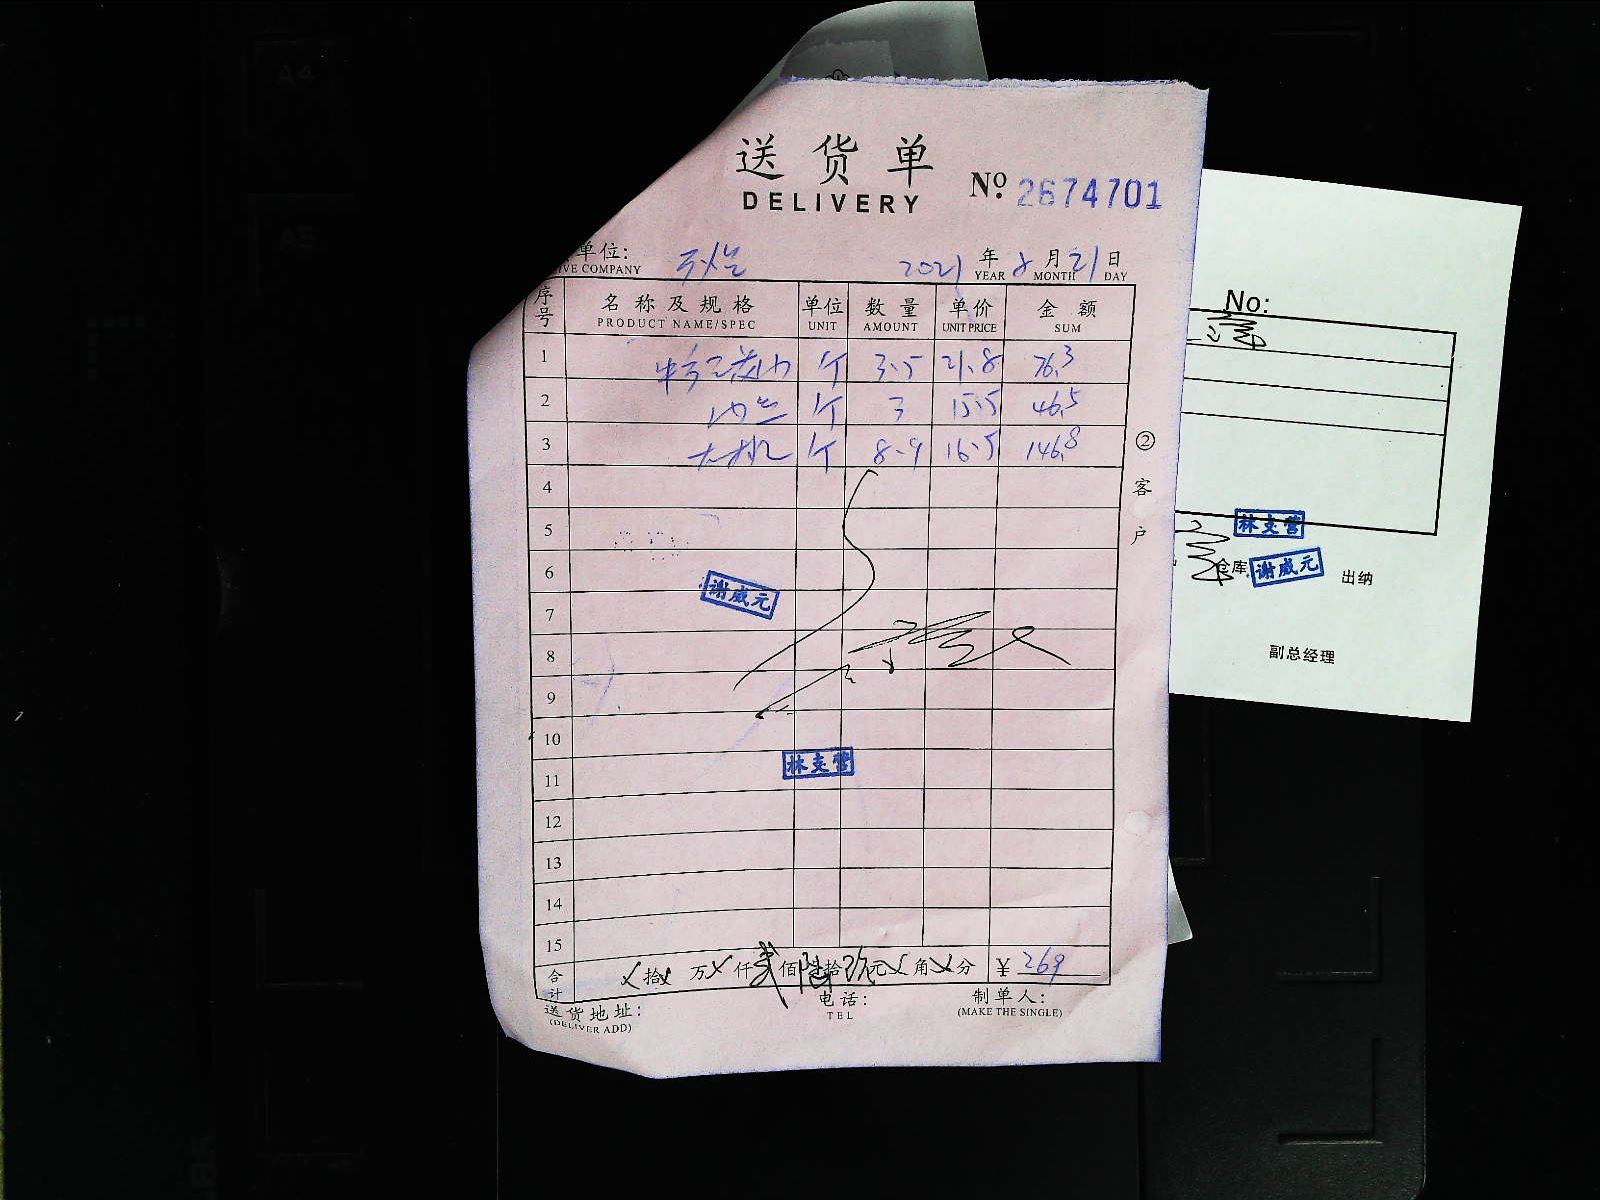 送货单
DELIVERY
No. 2674701
单位:
IVE COMPANY
2021 年 8 月 21 日
YEAR MONTH DAY
序号 名称及规格 单位 数量 单价 金额
PRODUCT NAME/SPEC UNIT AMOUNT UNIT PRICE SUM
1 个 3.5 21.8 76.3
2 个 3 15.5 46.5
3 个 8.9 16.5 146.8
4
5
6
7
8
9
10
11
12
13
14
15
谢威元
林支营
② 客户
合计 拾 万 仟 贰 佰 陆 拾 玖 元 角 分 ¥ 269
送货地址:
(DELIVER ADD)
电话:
TEL
制单人:
(MAKE THE SINGLE)
No:
林支营
仓库 谢威元 出纳
副总经理
A4